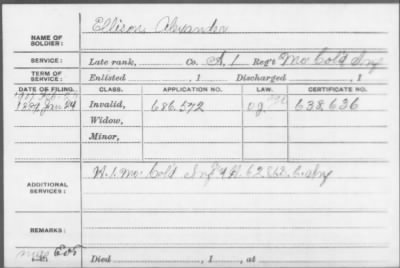 NAME OF SOLDIER: Ellison Alexander
SERVICE: Late rank, Co. A, 1 Reg't Mo Col'd Inf
TERM OF SERVICE: Enlisted , 1 Discharged , 1
DATE OF FILING. CLASS. APPLICATION NO. LAW. CERTIFICATE NO.
1889 Jan 24 Invalid, 686.572 638.636
Widow,
Minor,
ADDITIONAL SERVICES: A. 1. Mo. Col'd Inf & A. 62 U.S. C. Inf
REMARKS:
Died , 1 , at